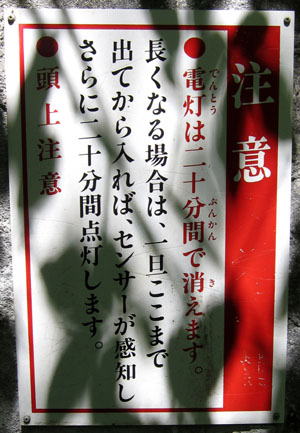 注意
●電灯は二十分間で消えます。
でんとう
ぷんかん
き
長くなる場合は、一旦ここまで
出てから入れば、センサーが感知し
さらに二十分間点灯します。
●頭上注意